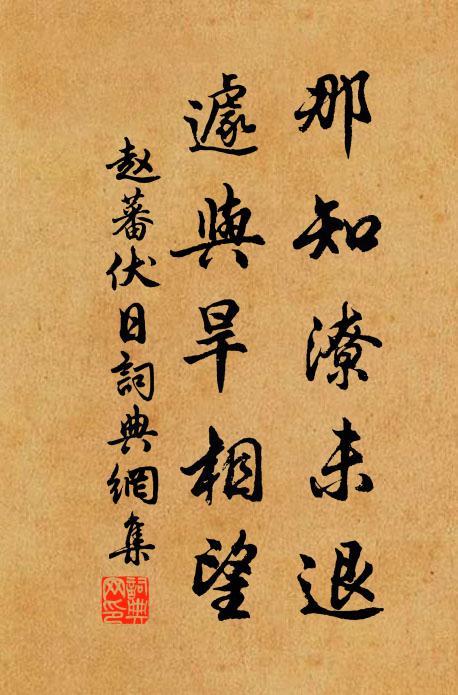 那知潦未退
遽與旱相望
赵蕃伏日詞典網集
詞典网印